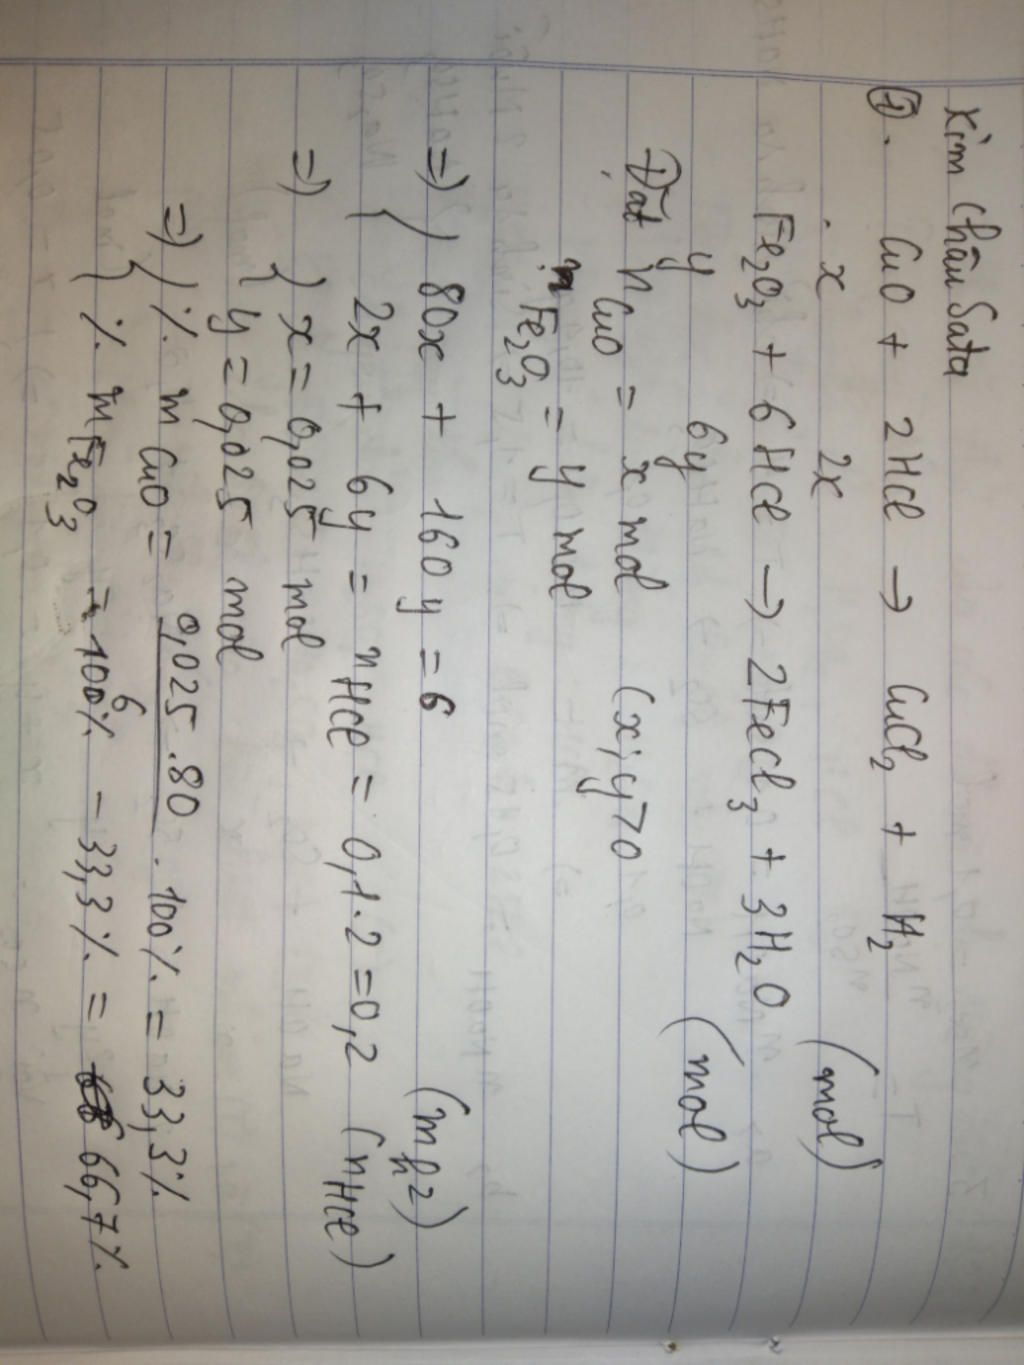 Kim Chân Sata
①. CuO + 2HCl → CuCl2 + H2
x 2x (mol)
Fe2O3 + 6HCl → 2FeCl3 + 3H2O
y 6y (mol)
Đặt nCuO = x mol (x;y>0
nFe2O3 = y mol
=> { 80x + 160y = 6 (mh2)
2x + 6y = nHCl = 0,1.2 = 0,2 (nHCl)
=> { x = 0,025 mol
y = 0,025 mol
=> { % mCuO = 0,025.80 / 6 . 100% = 33,3%
% mFe2O3 = 100% - 33,3% = 66,7%